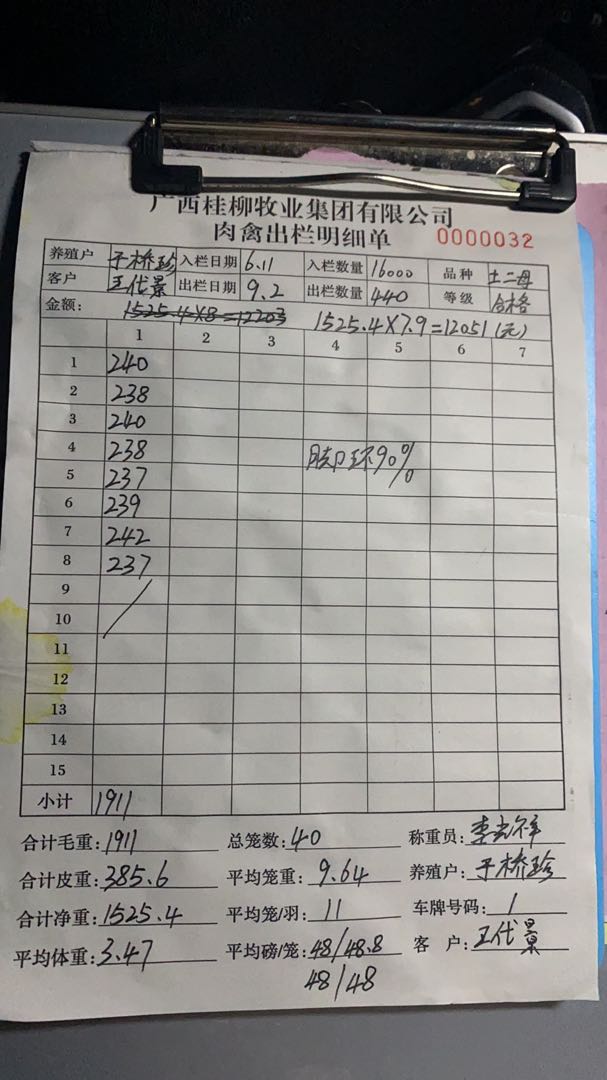 广西桂柳牧业集团有限公司
肉禽出栏明细单 0000032
养殖户 于桥珍 入栏日期 6.11 入栏数量 16000 品种 土二母
客户 王代景 出栏日期 9.2 出栏数量 440 等级 合格
金额: 1525.4×8=12203 1525.4×7.9=12051(元)
1 2 3 4 5 6 7
1 240
2 238
3 240
4 238 环90%
5 237
6 239
7 242
8 237
9
10
11
12
13
14
15
小计 1911
合计毛重:1911 总笼数:40 称重员:
合计皮重:385.6 平均笼重:9.64 养殖户:于桥珍
合计净重:1525.4 平均笼/羽:11 车牌号码:1
平均体重:3.47 平均磅/笼:48/48.8 客 户:王代景
48/48